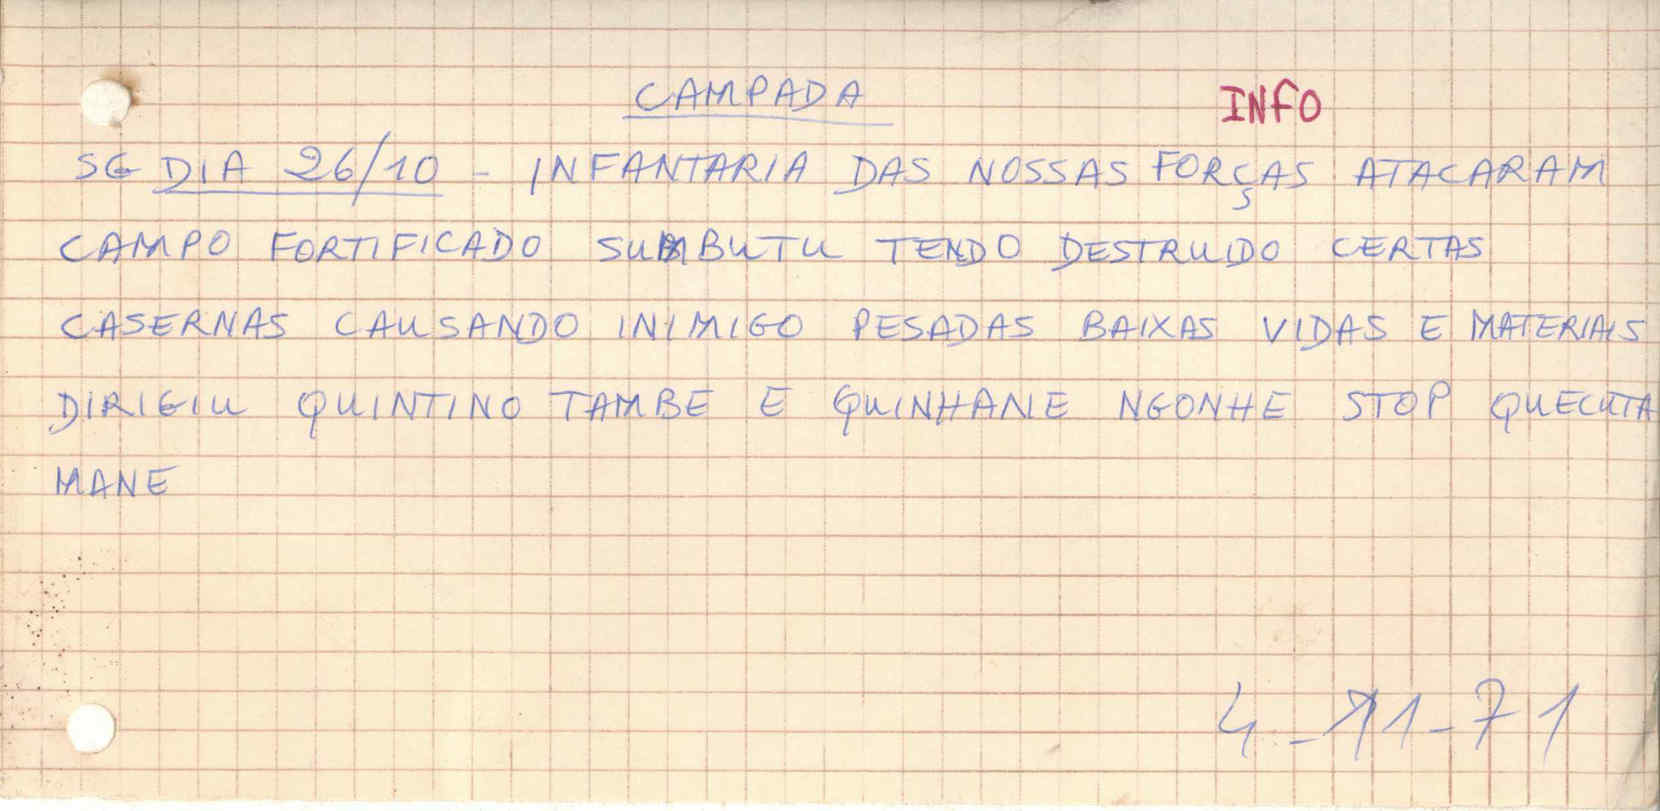 CAMPADA INFO
SG DIA 26/10 - INFANTARIA DAS NOSSAS FORÇAS ATACARAM
CAMPO FORTIFICADO SUMBUTU TENDO DESTRUIDO CERTAS
CASERNAS CAUSANDO INIMIGO PESADAS BAIXAS VIDAS E MATERIAIS
DIRIGIU QUINTINO TAMBE E QUINHANE NGONHE STOP QUECUTA
MANE
4-11-71